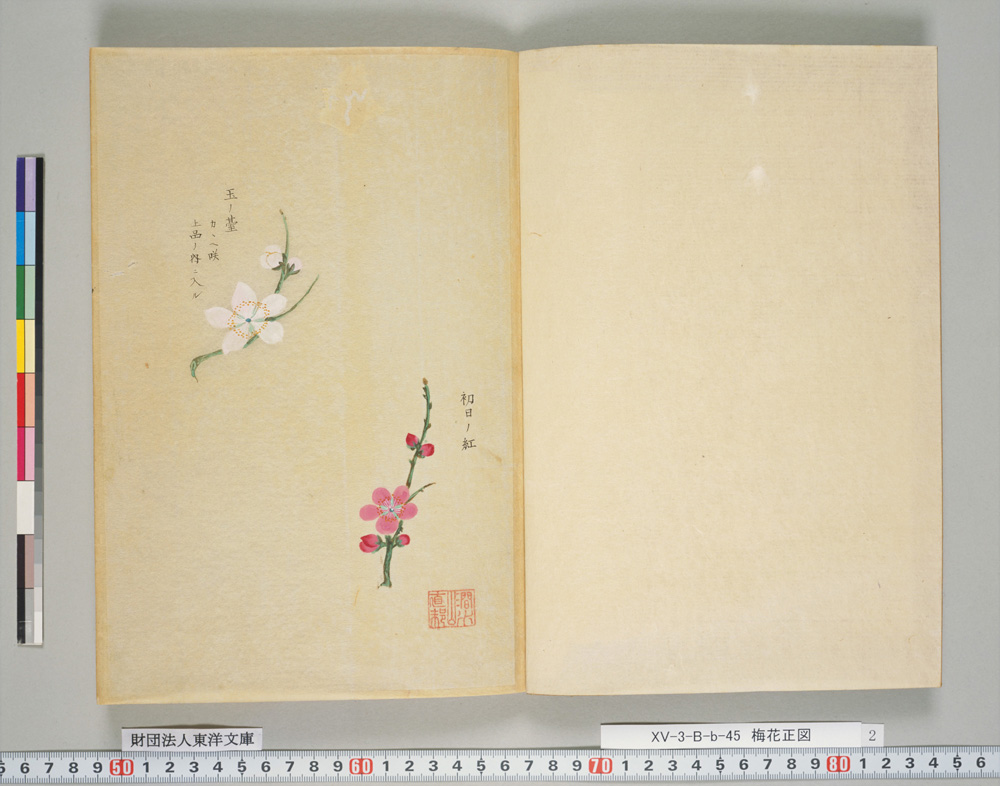 初日ノ紅
玉ノ臺
カヽヘ咲
上品ノ部ニ入ル
財団法人東洋文庫
XV-3-B-b-45 梅花正図
2
5 6 7 8 9 50 1 2 3 4 5 6 7 8 9 60 1 2 3 4 5 6 7 8 9 70 1 2 3 4 5 6 7 8 9 80 1 2 3 4 5 6